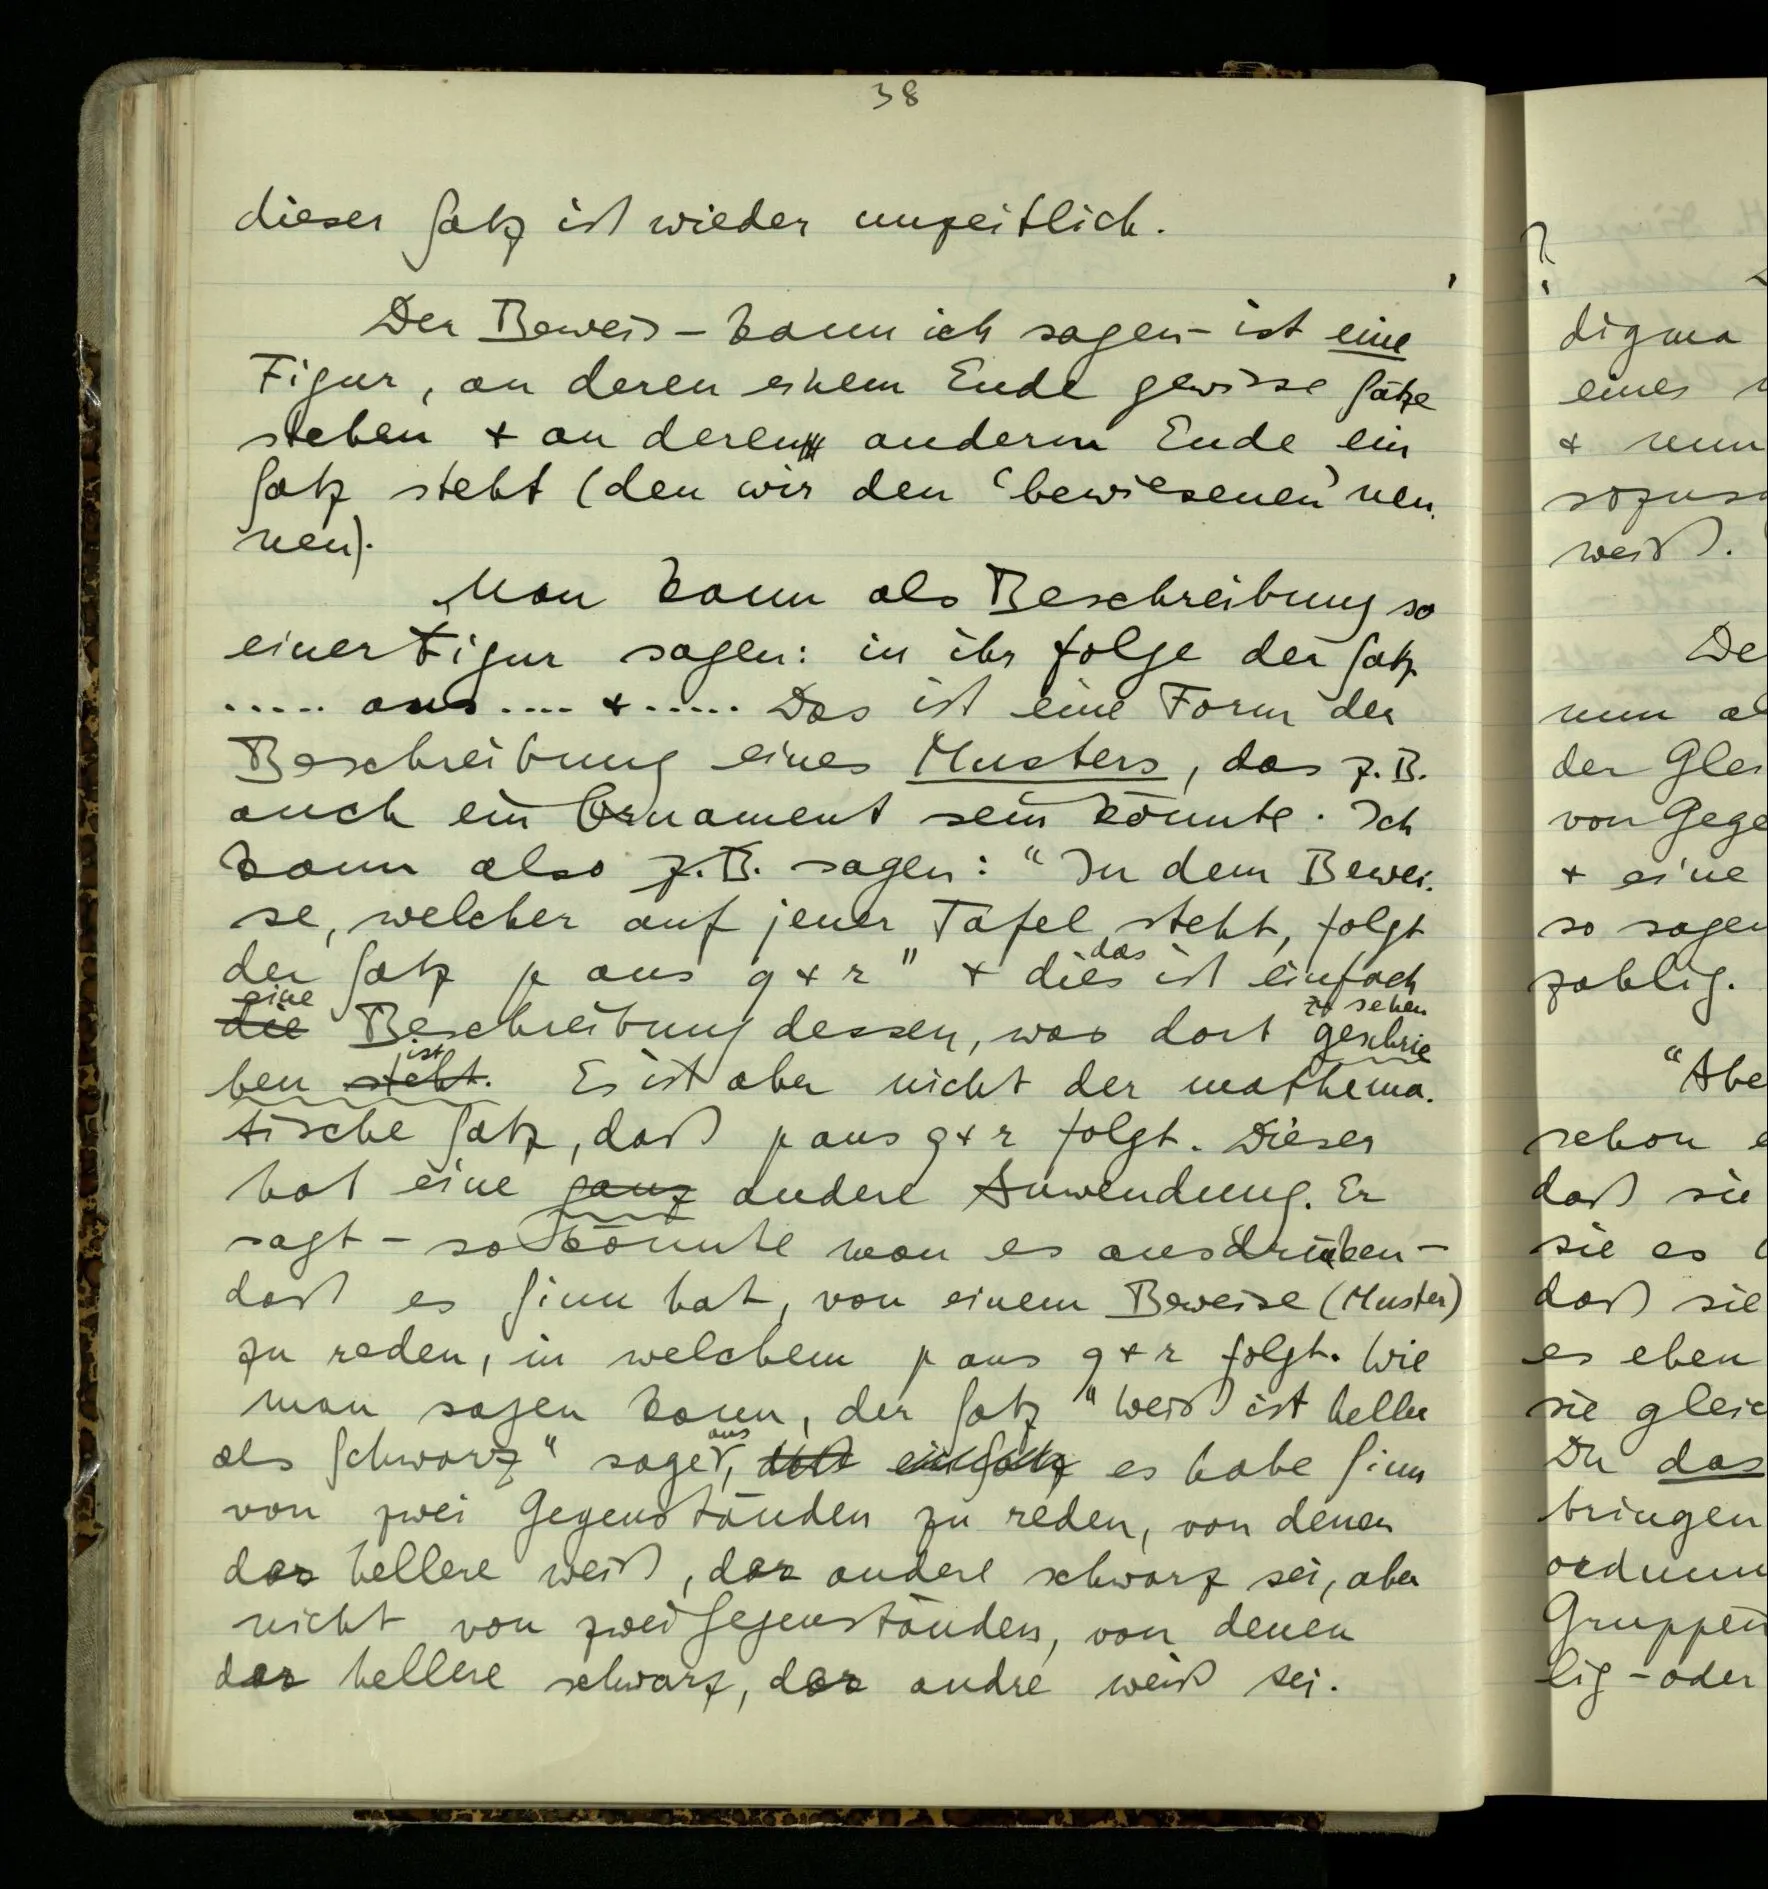 38
dieser Satz ist wieder unzeitlich.
Der Beweis – kann ich sagen – ist eine
Figur, an deren einem Ende gewisse Sätze
stehen + an deren anderm Ende ein
Satz steht (den wir den 'bewiesenen' nen-
nen).
Man kann als Beschreibung so
einer Figur sagen: in ihr folge der Satz
..... aus .... + ..... Das ist eine Form der
Beschreibung eines Musters, das z.B.
auch ein Ornament sein könnte. Ich
kann also z.B. sagen: "In dem Bewei-
se, welcher auf jener Tafel steht, folgt
das
der Satz p aus q + r" + dies ist einfach
eine zu sehen
die Beschreibung dessen, was dort geschrie
ist
ben steht. Es ist aber nicht der mathema-
tische Satz, daß p aus q + r folgt. Dieser
hat eine ganz andere Anwendung. Er
sagt – so könnte man es ausdrücken –
daß es Sinn hat, von einem Beweise (Muster)
zu reden, in welchem p aus q + r folgt. Wie
man sagen kann, der Satz "weiß ist heller
aus
als schwarz" sage, es habe Sinn
von zwei Gegenständen zu reden, von denen
der hellere weiß, der andere schwarz sei, aber
nicht von zwei Gegenständen, von denen
der hellere schwarz, der andre weiß sei.
?
digma
eines
+ nun
sozusa
weiß.
De
nun al
der Glei
von Gege
+ eine
so sagen
zahlig.
"Abe
schon e
daß sie
sie es
daß sie
es eben
sie gleic
Du das
bringen
ordnun
Gruppen
lig – oder